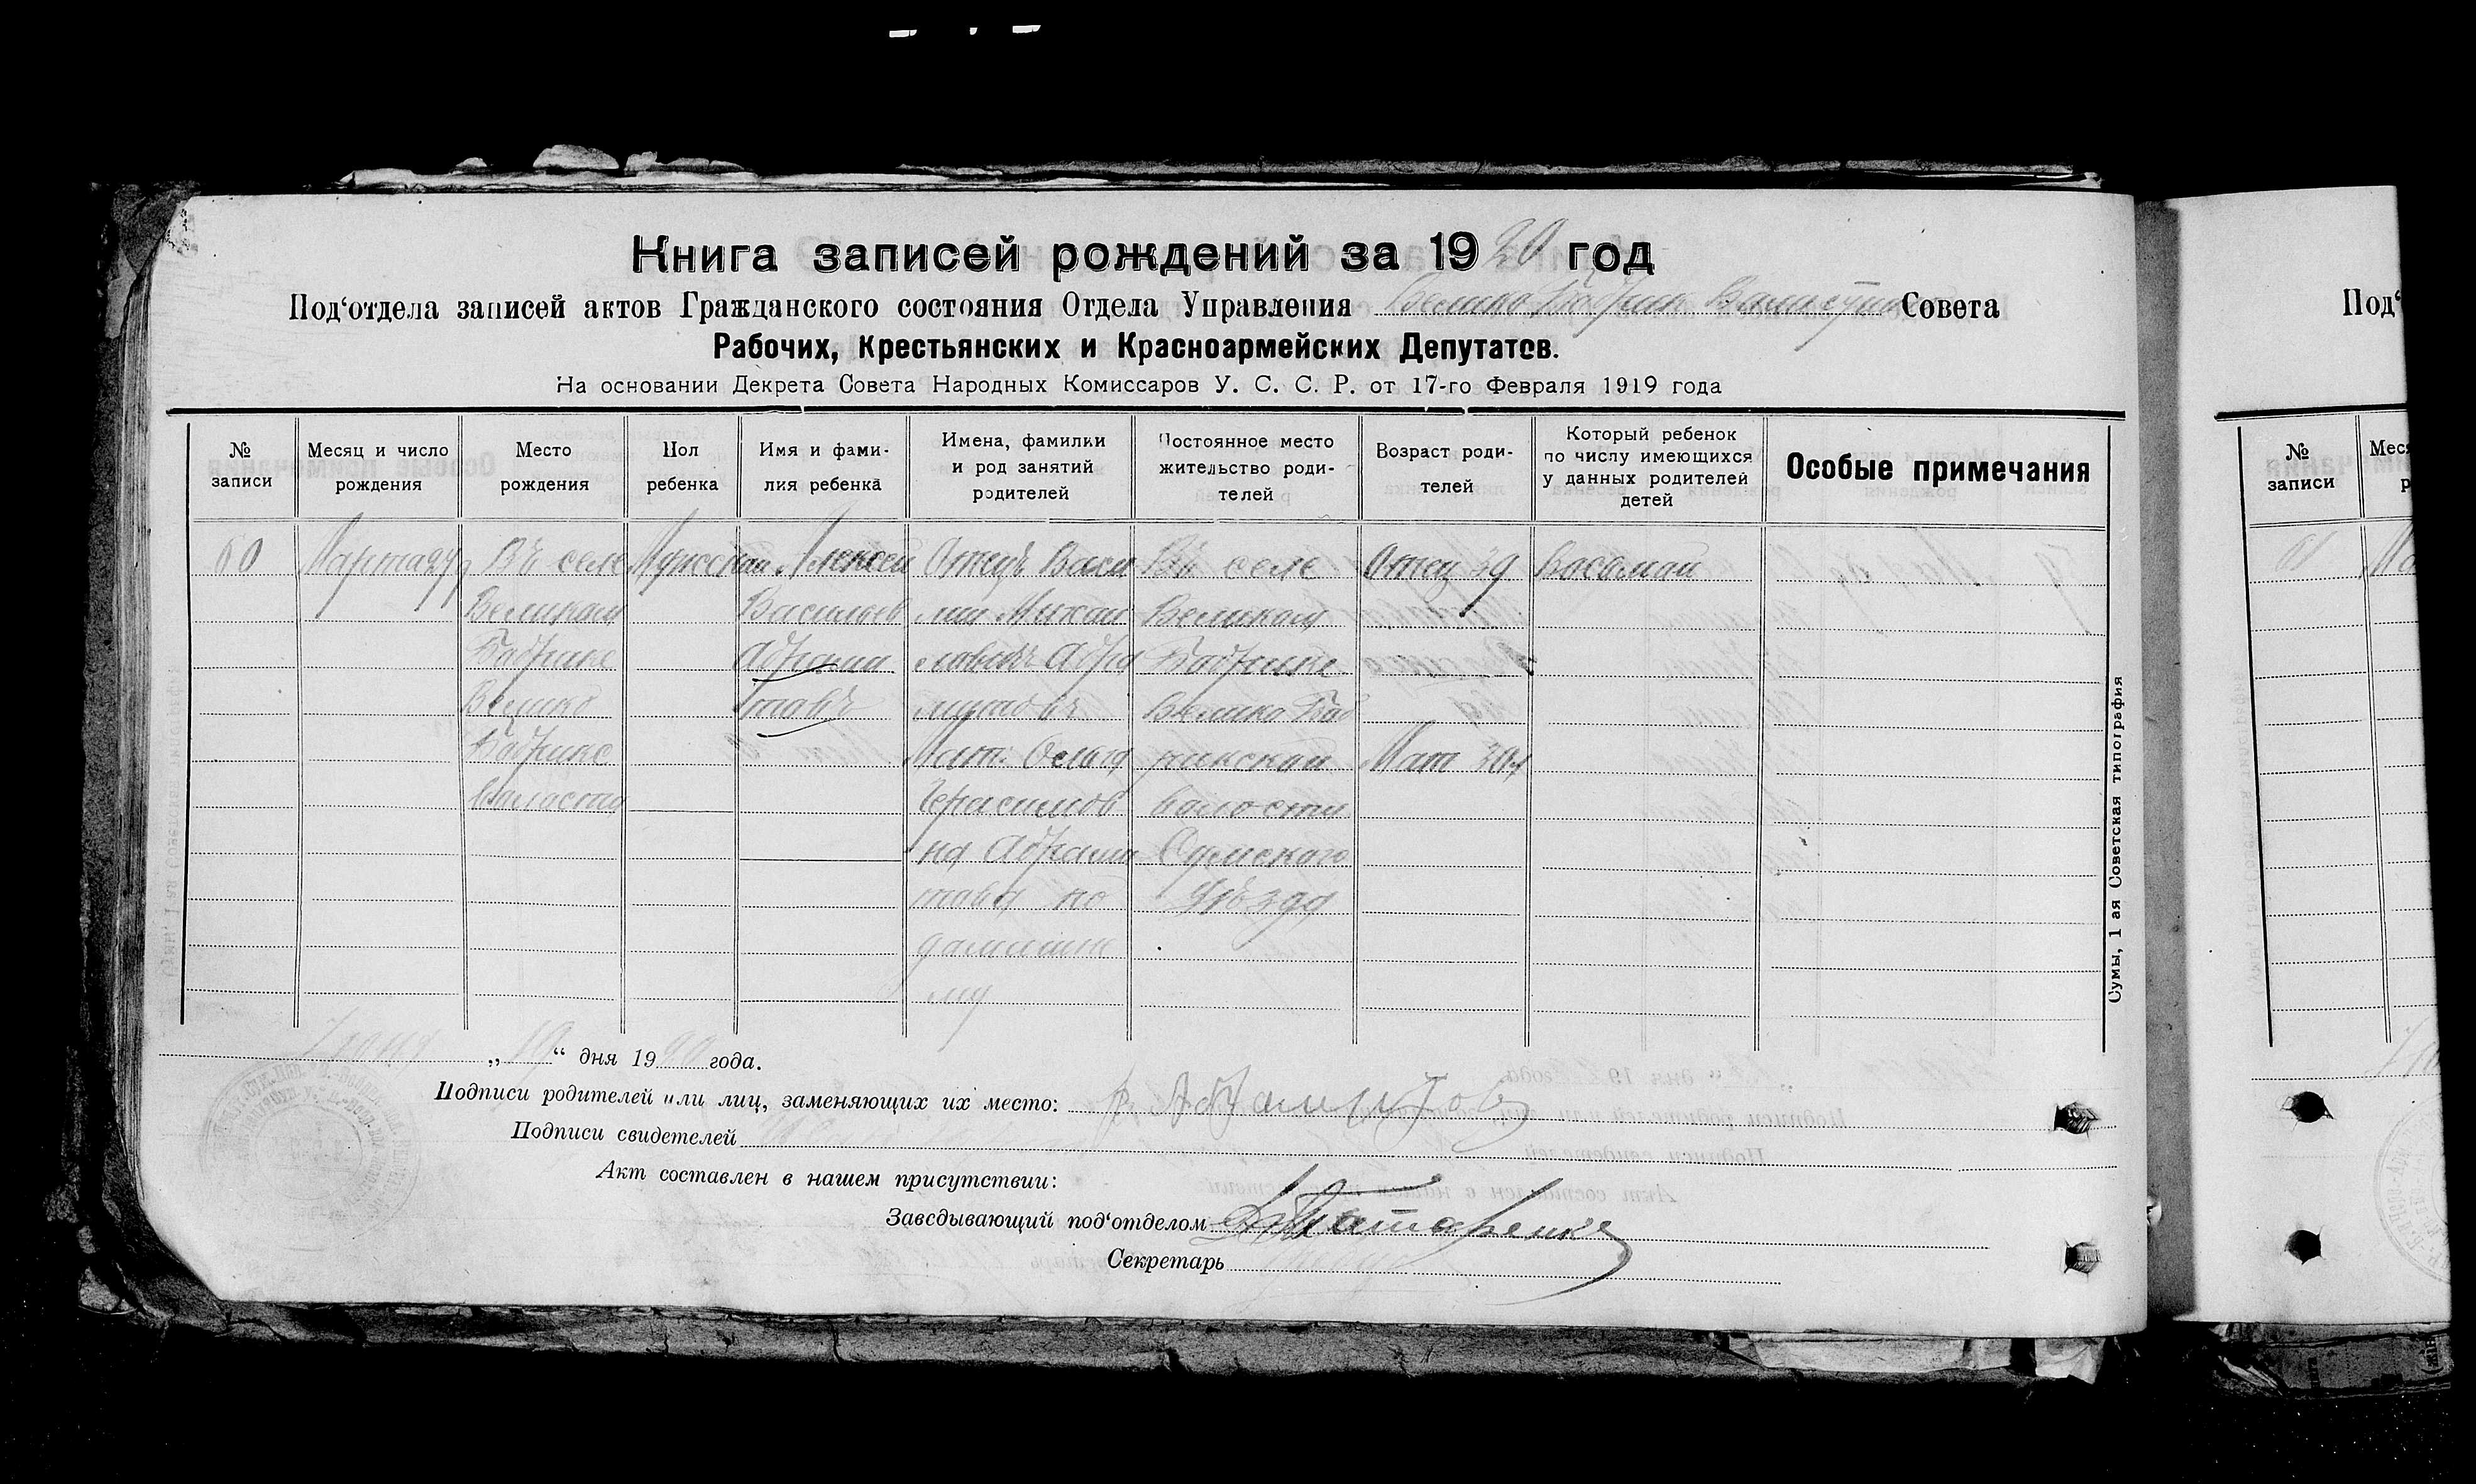 Книга записей рождений за 1920 год
Под‘отдела записей актов Гражданского состояния Отдела Управления Велико Бобрик Совета
Рабочих, Крестьянских и Красноармейских Депутатов.
На основании Декрета Совета Народных Комиссаров У. С. С. Р. от 17-го Февраля 1919 года
№ записи
Месяц и число рождения
Место рождения
Пол ребенка
Имя и фами-
лия ребенка
Имена, фамилии
и род занятий
родителей
Постоянное место
жительство роди-
телей
Возраст роди-
телей
Который ребенок
по числу имеющихся
у данных родителей
детей
Особые примечания
60
Марта
Въ селе
Великом
Бобрике
Велико
Бобрикс
Валасти
Мужской
Алексей
Васильев
Абрами
товъ
Отецъ Васи
лий Михаи
ловичъ Абра
митовъ
Мать Ольга
Герасимов
на Абрами
това по
домашне
му
Въ селе
Великом
Бобрике
Велико Боб
рикской
волости
Сумского
Уѣзда
Отец 39
Мат
Восьмой
„ “ дня 1920 года.
Подписи родителей или лиц, заменяющих их место: Абрамитов
Подписи свидетелей
Акт составлен в нашем присутствии:
Заведывающий под‘отделом Татаренко
Секретарь
Сумы, 1 ая Советская типография
Под‘
№ записи
61